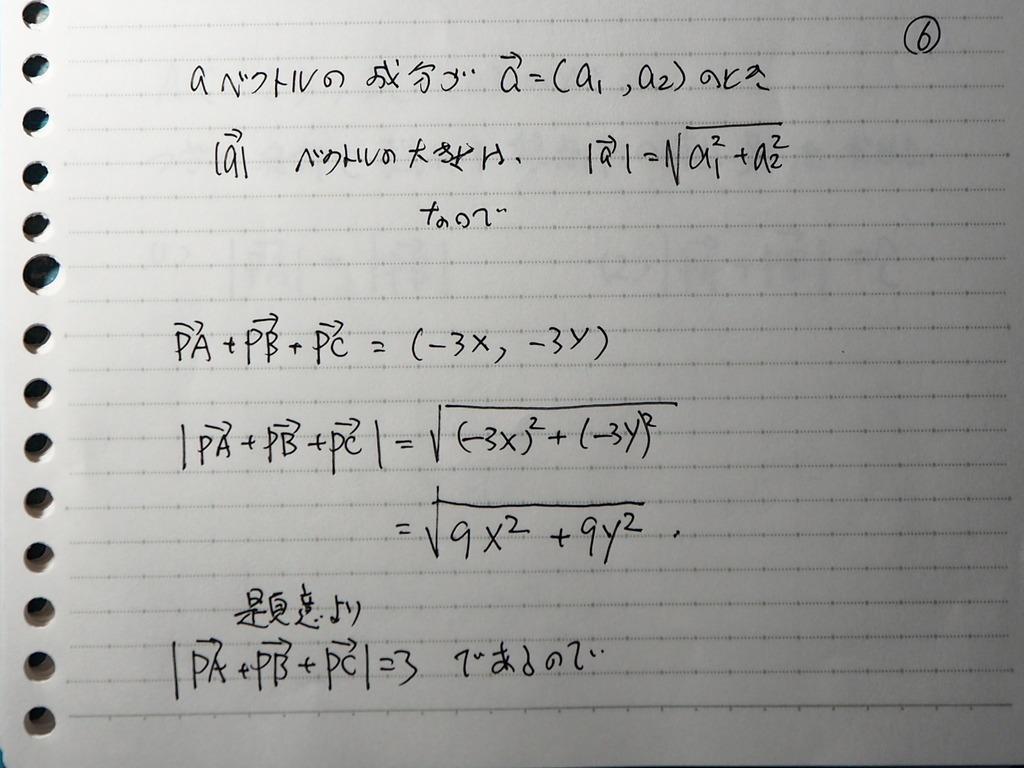 ⑥
aベクトルの 成分が a⃗=(a₁,a₂)のとき
|a⃗| ベクトルの大きさは、 |a⃗|=√(a₁²+a₂²)
なので
PA⃗+PB⃗+PC⃗=(-3x, -3y)
|PA⃗+PB⃗+PC⃗|=√((-3x)²+(-3y)²)
=√(9x²+9y²).
題意より
|PA⃗+PB⃗+PC⃗|=3 であるので